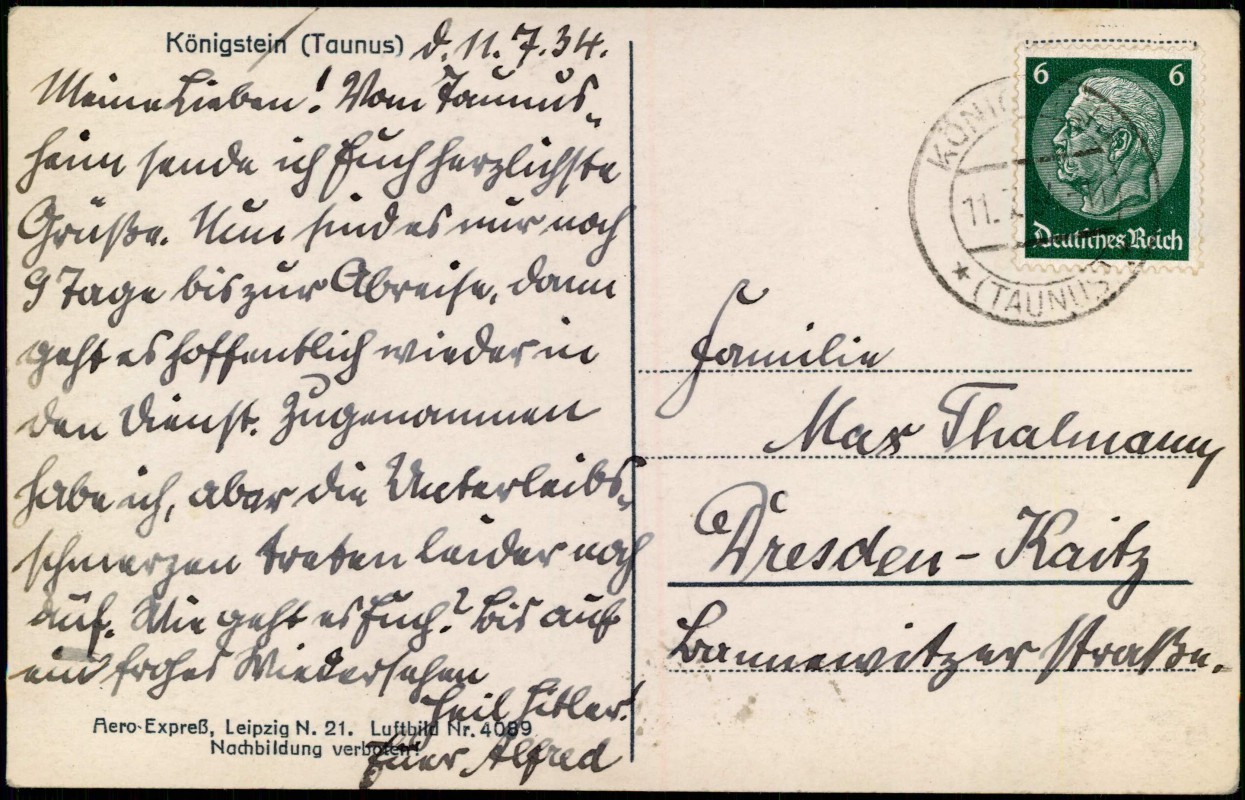 Königstein (Taunus) d. 11. 7. 34.
Meine Lieben! Vom Taunus-
heim sende ich Euch herzlichste
Grüße. Nun sind es nur noch
9 Tage bis zur Abreise, dann
geht es hoffentlich wieder in
den Dienst. Zugenommen
habe ich, aber die Unterleibs-
schmerzen treten leider noch
auf. Wie geht es Euch? Bis auf
ein frohes Wiedersehen
Heil Hitler!
Euer Alfred
Aero-Expreß, Leipzig N. 21. Luftbild Nr. 4089
Nachbildung verboten!
6 6
Deutsches Reich
KÖNIG
11.
* (TAUNUS)
Familie
Max Thalmann
Dresden-Kaitz
Bannewitzer Straße.